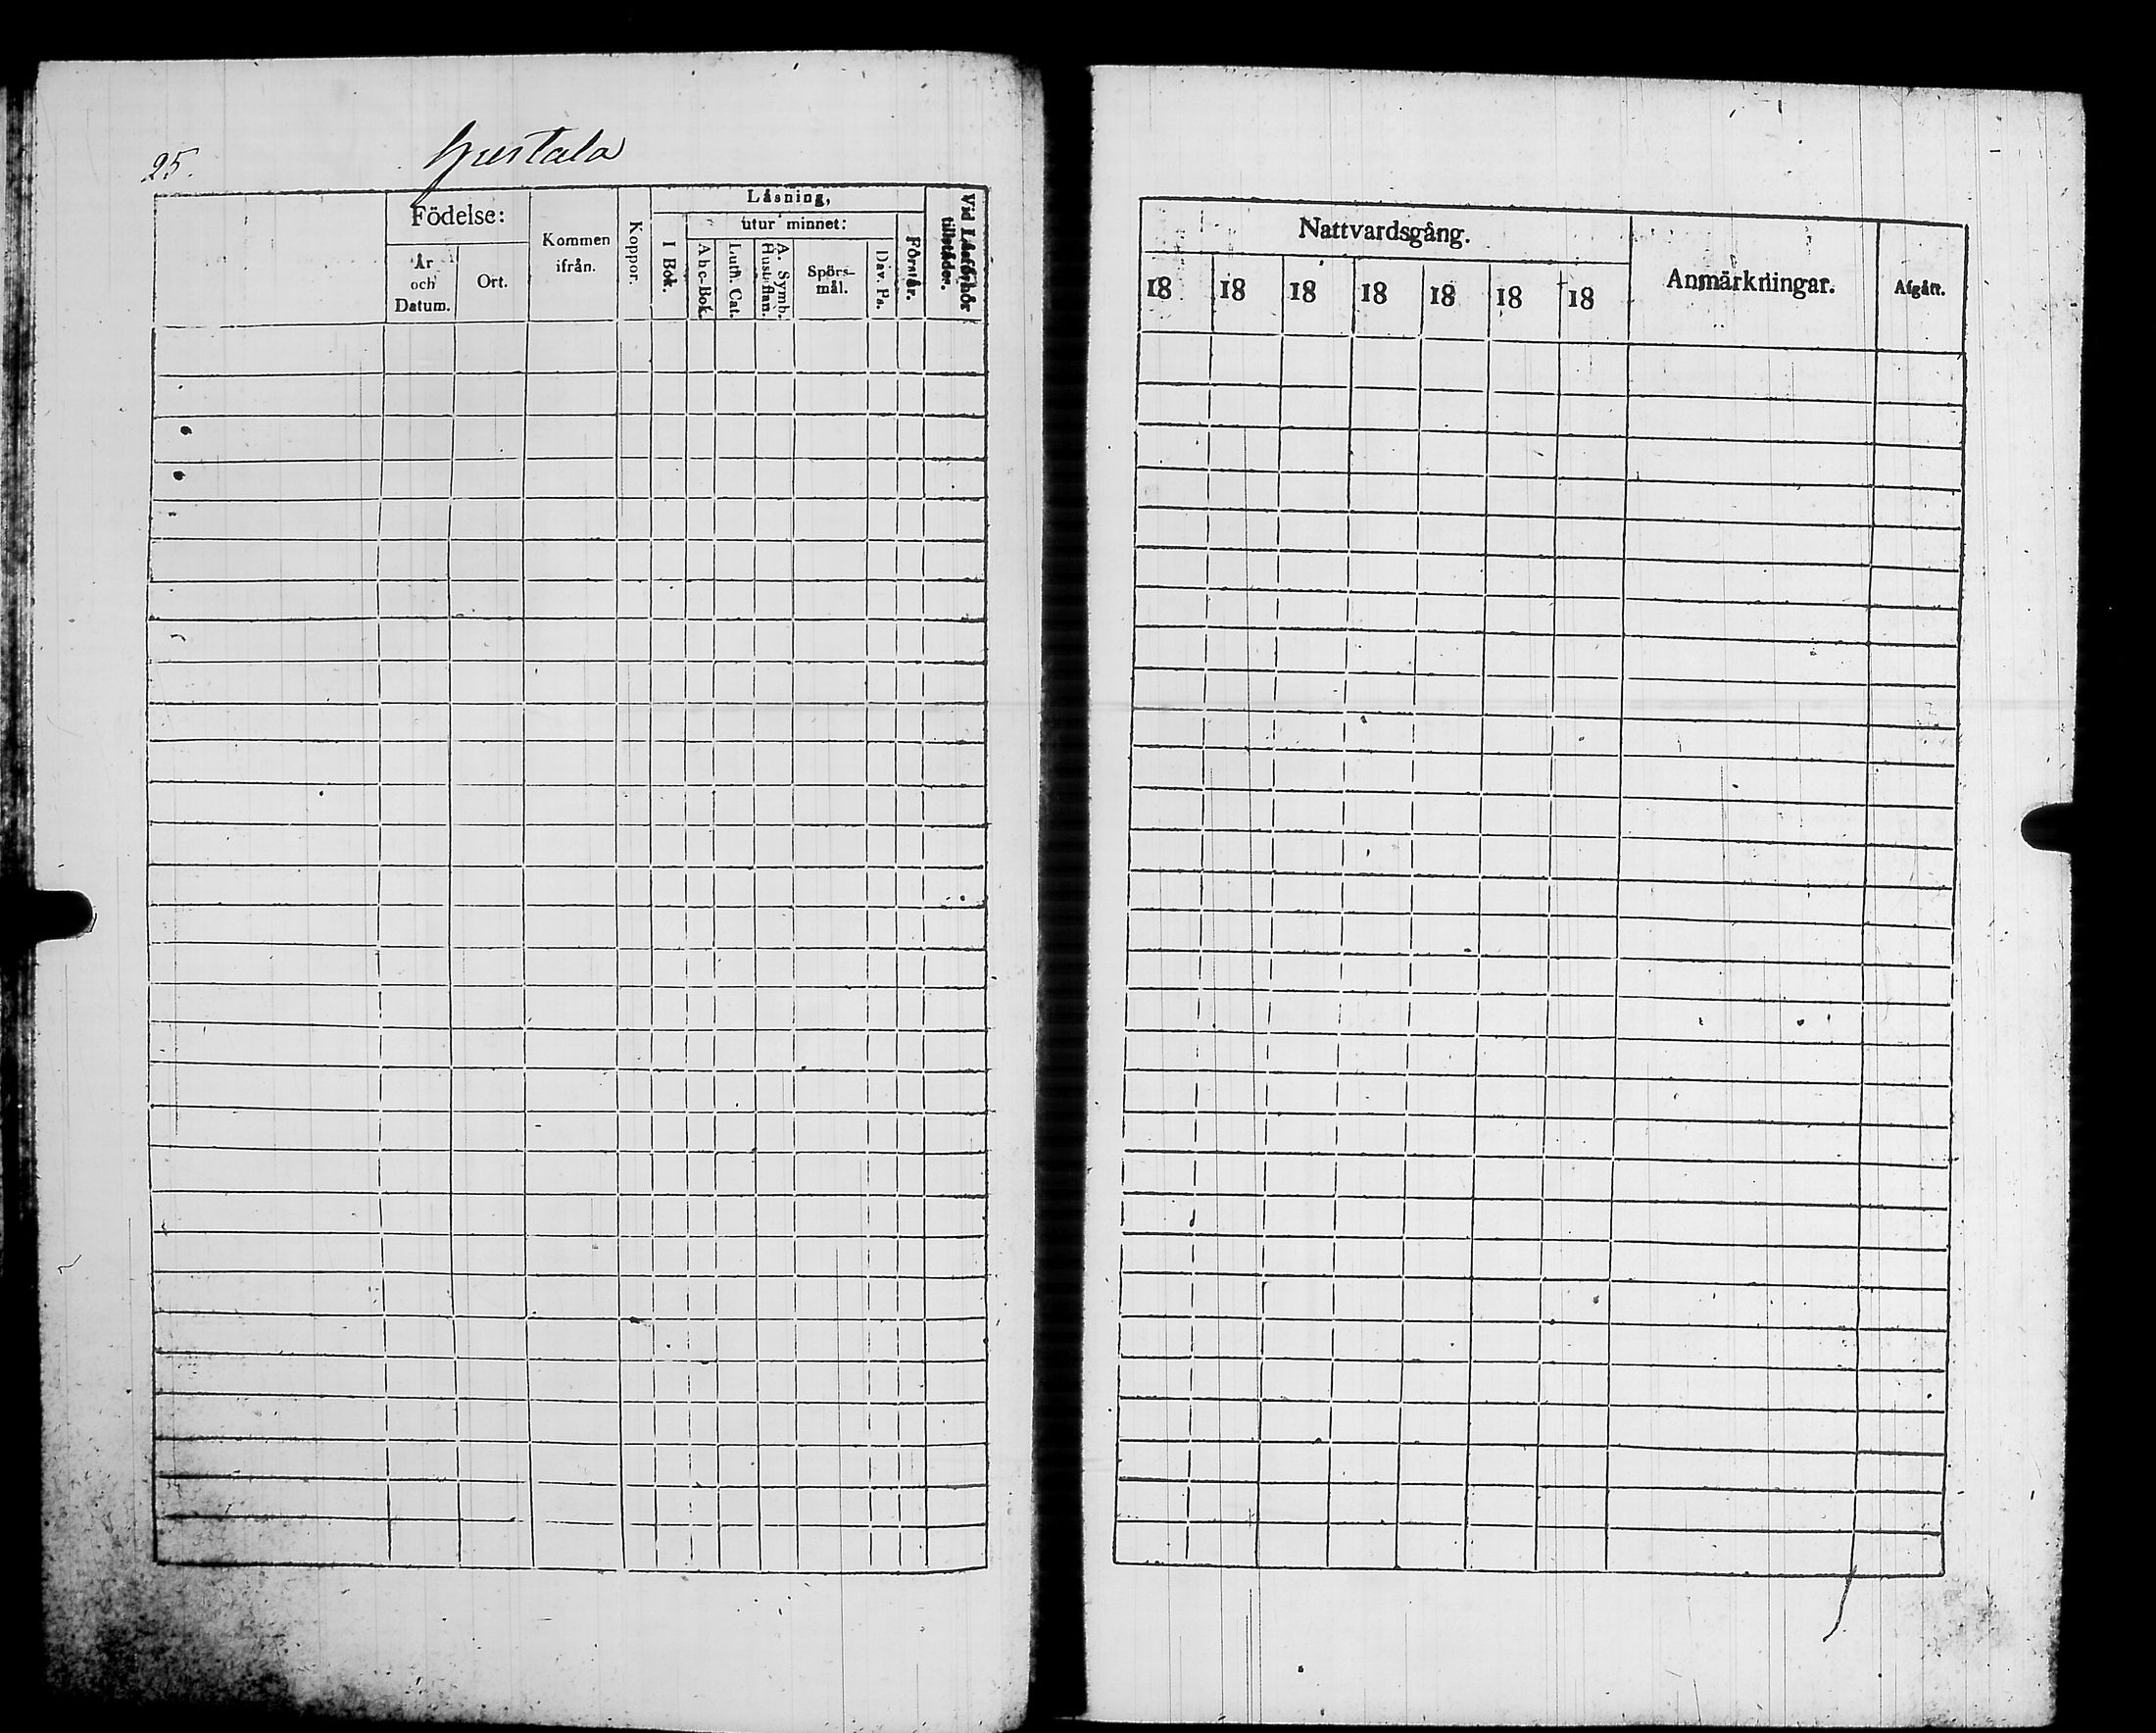 25.
Läsning,
Födelse:
Kommen
ifrån.
Koppor.
utur minnet:
Vid Läsförhör
tillstädes.
År
och
Datum.
Ort.
I Bok.
Abc-Bok.
Luth. Cat.
A. Symb.
Hustaflan.
Spörs-
mål.
Dav. Ps.
Förstår.
Nattvardsgång.
Anmärkningar.
Afgått.
18 18 18 18 18 18 18